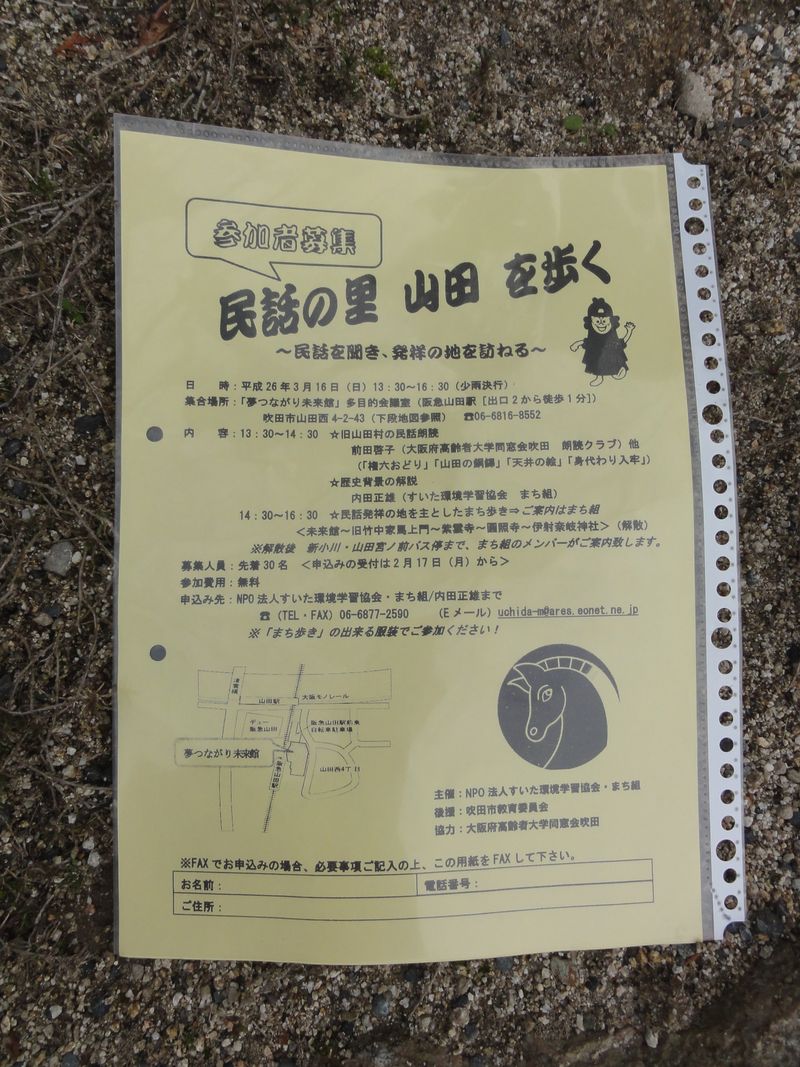 参加者募集
民話の里 山田 を歩く
～民話を聞き、発祥の地を訪ねる～
日　時：平成26年3月16日（日）13：30～16：30（少雨決行）
集合場所：「夢つながり未来館」多目的会議室（阪急山田駅［出口2から徒歩1分］）
吹田市山田西4-2-43（下段地図参照）　☎06-6816-8552
内　容：13：30～14：30　☆旧山田村の民話朗読
前田啓子（大阪府高齢者大学同窓会吹田　朗読クラブ）他
（「権六おどり」「山田の銅鐸」「天井の絵」「身代わり入牢」）
☆歴史背景の解説
内田正雄（すいた環境学習協会　まち組）
14：30～16：30　☆民話発祥の地を主としたまち歩き⇒ご案内はまち組
＜未来館～旧竹中家馬上門～紫雲寺～圓照寺～伊射奈岐神社＞（解散）
※解散後　新小川・山田宮ノ前バス停まで、まち組のメンバーがご案内致します。
募集人員：先着30名　＜申込みの受付は2月17日（月）から＞
参加費用：無料
申込み先：NPO法人すいた環境学習協会・まち組/内田正雄まで
☎（TEL・FAX）06-6877-2590　（Eメール）uchida-m@ares.eonet.ne.jp
※「まち歩き」の出来る服装でご参加ください！
山田駅
大阪モノレール
デュー
阪急山田
阪急山田駅前東
自転車駐車場
夢つながり未来館
阪急山田駅
山田西4丁目
主催：NPO法人すいた環境学習協会・まち組
後援：吹田市教育委員会
協力：大阪府高齢者大学同窓会吹田
※FAXでお申込みの場合、必要事項ご記入の上、この用紙をFAXして下さい。
お名前：
電話番号：
ご住所：